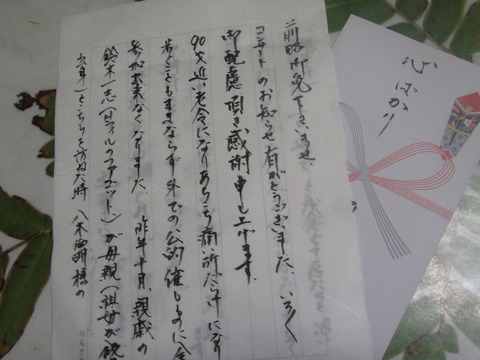 前略御免下さいませ
コンサートのお知らせ有がとうございました いろく
御配慮頂き感謝申し上げます
90才近い老令になりあちこち痛い所だらけになり
歩くこともままならず外での公的催しものに
参加出来なくなりました 昨年十月、親戚の
鈴木一志(日フィルのファゴット)が母親(祖母が
出身)とちらを訪ねた時 八木 様の
心ばかり